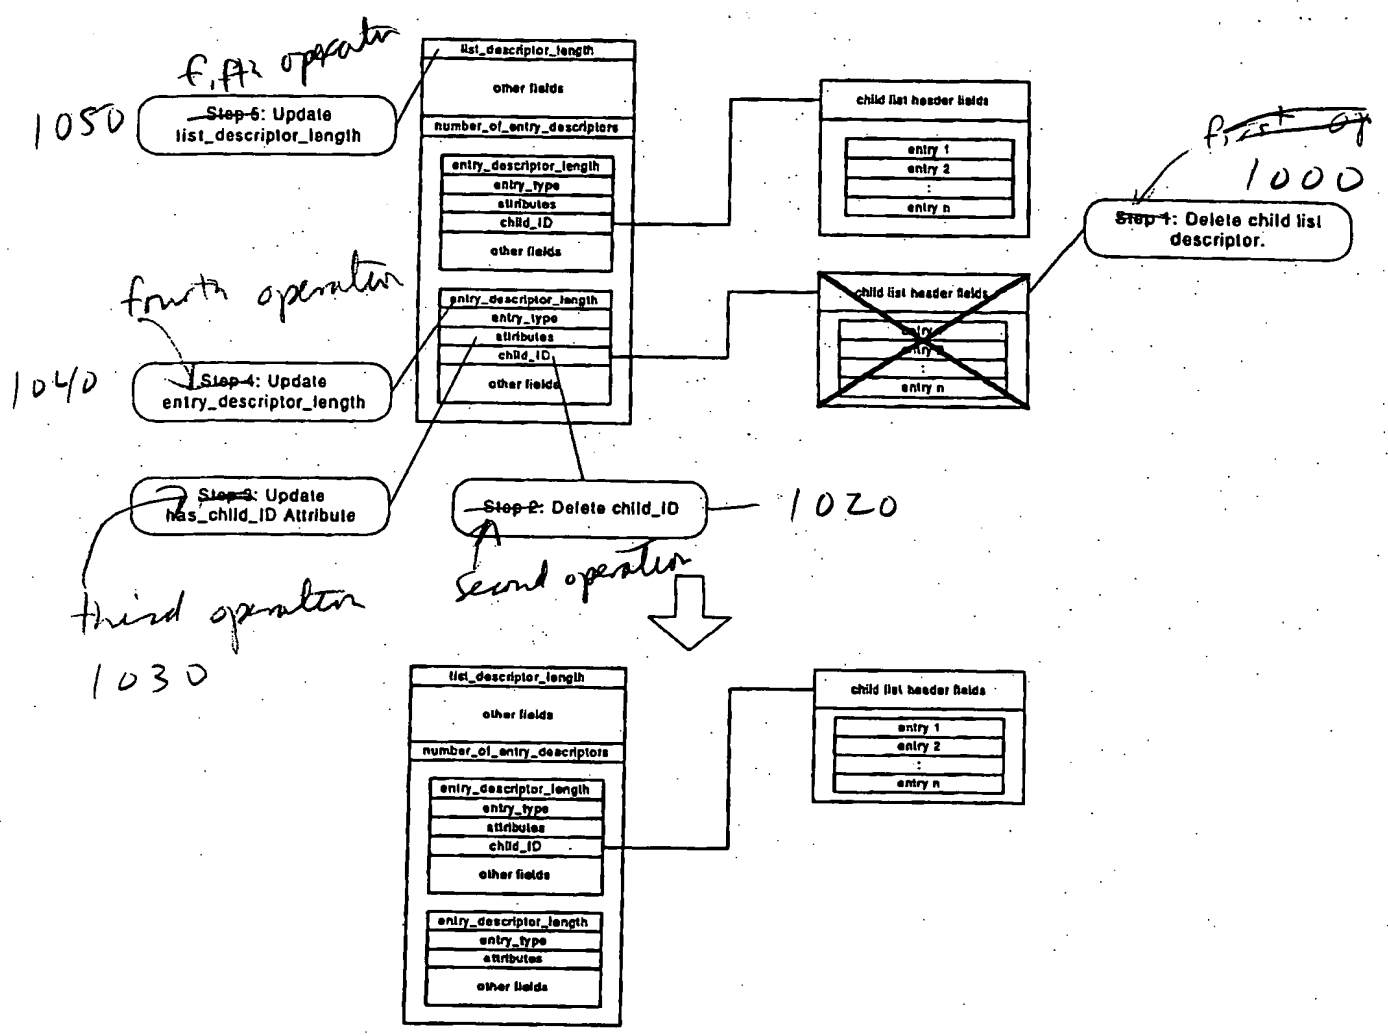 fifth operation
1050
Step 5: Update
list_descriptor_length
list_descriptor_length
other fields
number_of_entry_descriptors
entry_descriptor_length
entry_type
attributes
child_ID
other fields
child list header fields
entry 1
entry 2
:
entry n
1000
Step 1: Delete child list
descriptor.
fourth operation
1040
Step 4: Update
entry_descriptor_length
entry_descriptor_length
entry_type
attributes
child_ID
other fields
child list header fields
:
entry n
Step 3: Update
has_child_ID Attribute
third operation
1030
Step 2: Delete child_ID
1020
second operation
list_descriptor_length
other fields
number_of_entry_descriptors
entry_descriptor_length
entry_type
attributes
child_ID
other fields
entry_descriptor_length
entry_type
attributes
other fields
child list header fields
entry 1
entry 2
:
entry n